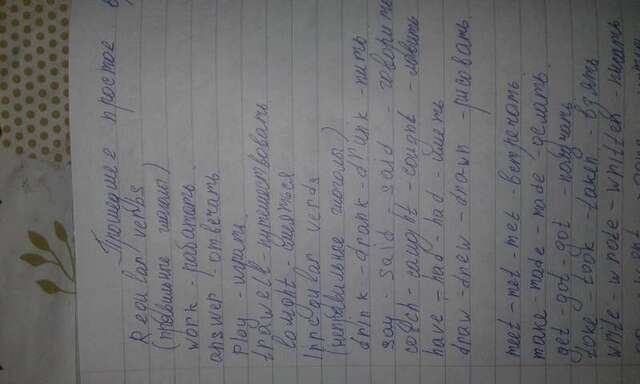 Прошедшее простое
Regular verbs
(правильные глаголы)
work - работать
answer - отвечать
play - играть
trawell - путешествовать
lought - смеяться
Irregular verds
(неправильные глаголы)
drink - drank - drunk - пить
say - said - said - говорить
catch - caught - cought - ловить
have - had - had - иметь
draw - drew - drawn - рисовать
meet - met - met - встречать
make - made - made - делать
get - got - got - получать
take - took - taken - взять
write - wrote - written - писать